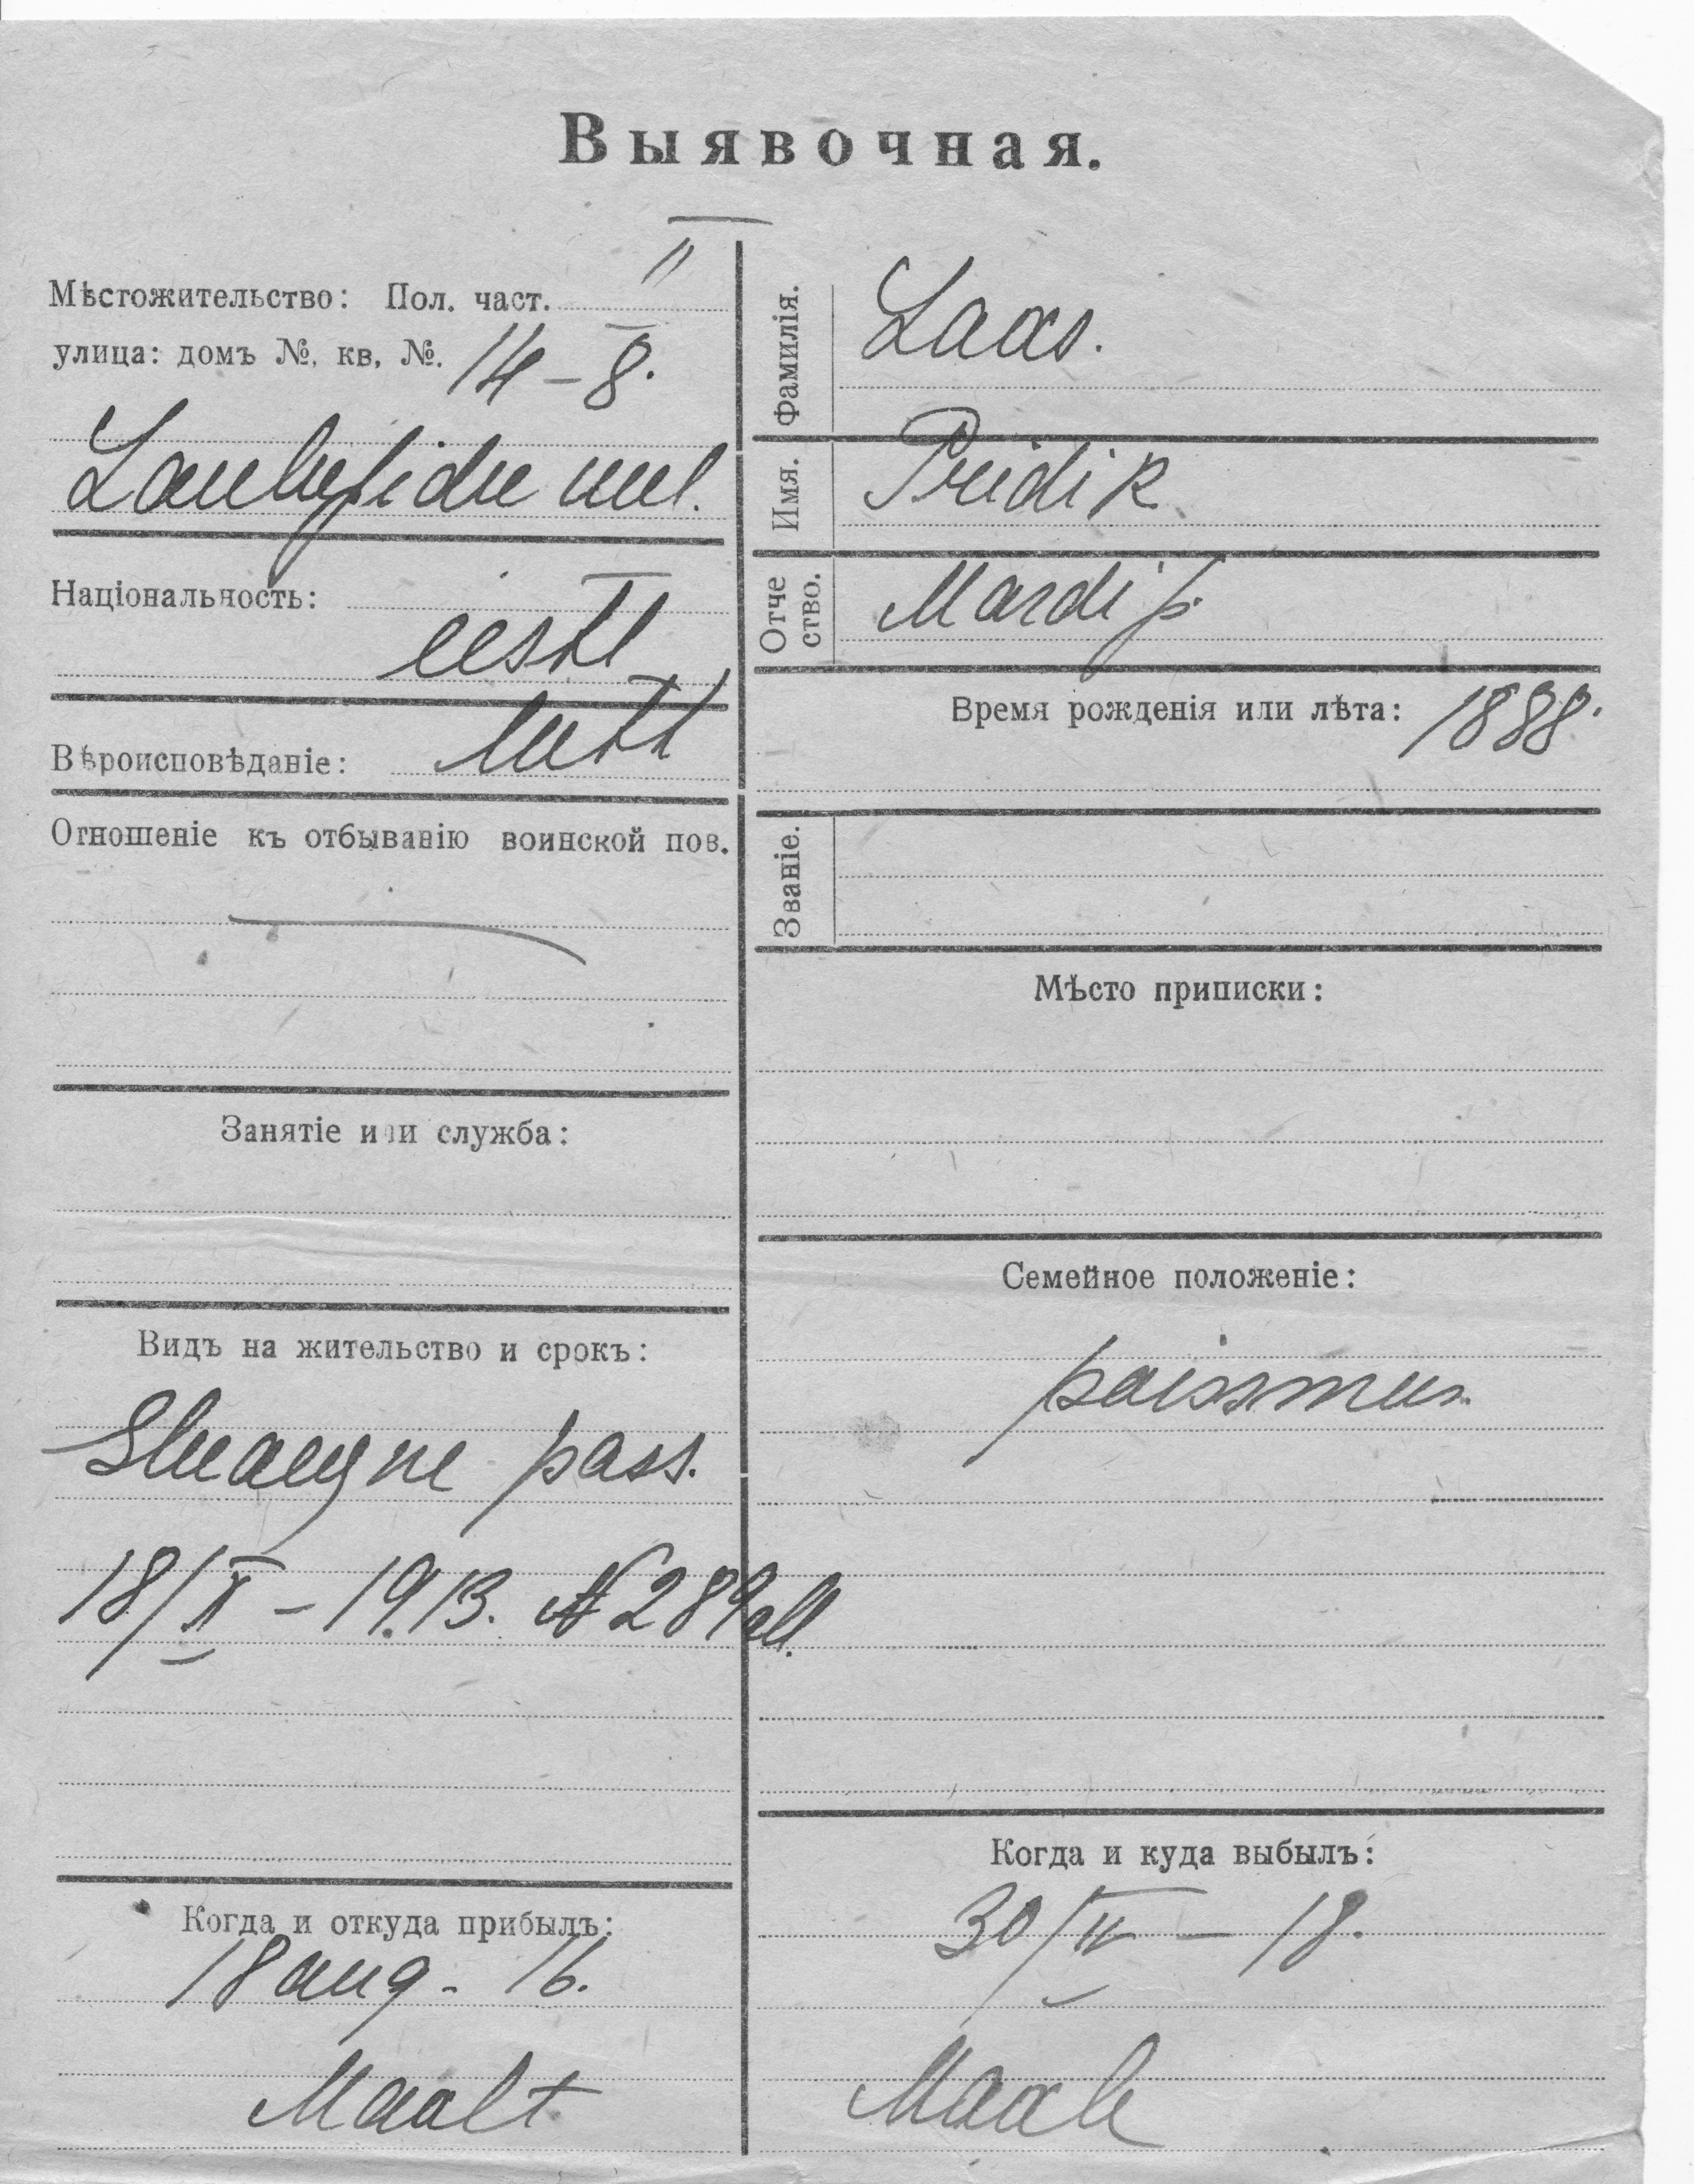 Выявочная.
Мѣстожительство: Пол. част. II
улица: домъ №, кв, №. 14 – 8.
uul.
Національность:
eesti
Вѣроисповѣданіе: lutt
Отношеніе къ отбыванію воинской пов.
Занятіе или служба:
Видъ на жительство и срокъ:
pass.
18/X – 1913. № 289 all.
Когда и откуда прибылъ:
18 aug. 16.
Maalt
Фамилія. Laas.
Имя. Priidik
Отчество. Mardi p.
Время рожденія или лѣта: 1888.
Званіе.
Мѣсто приписки:
Семейное положеніе:
poissmus.
Когда и куда выбылъ:
30/IV – 18.
Maale